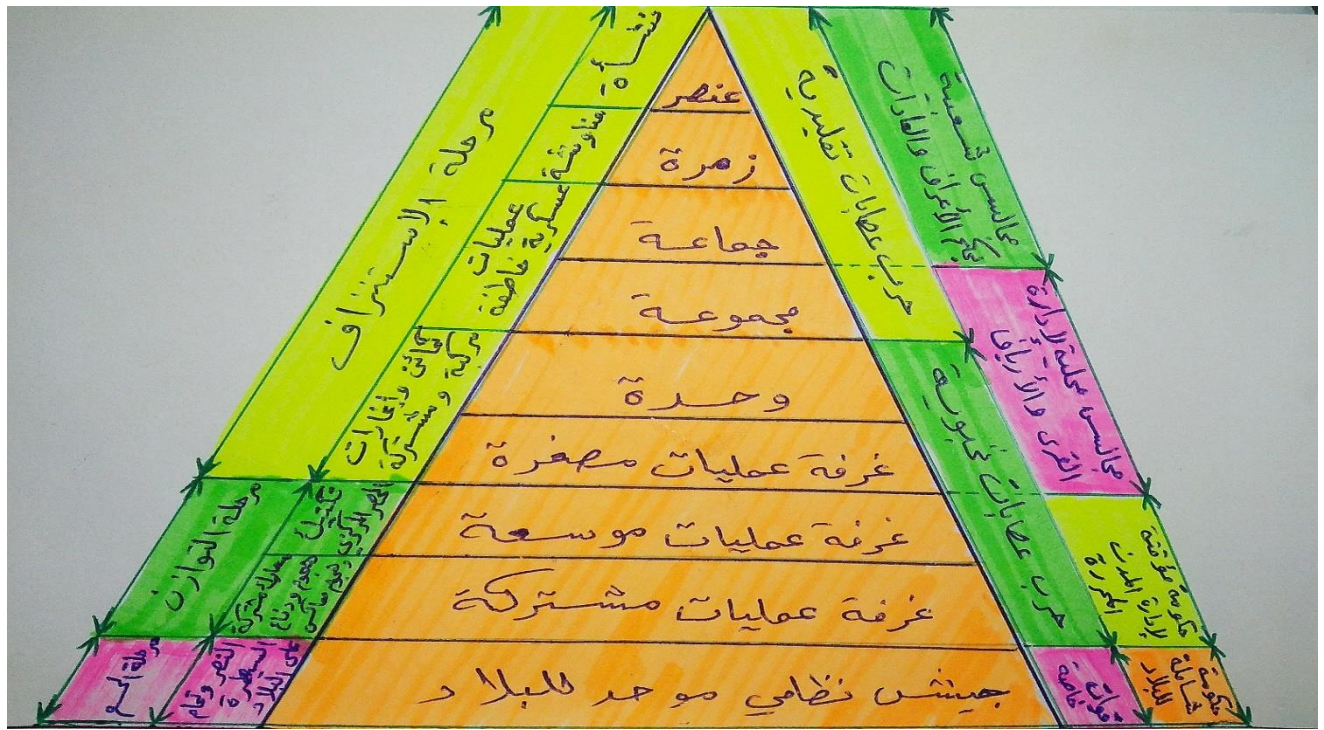 عنصر
زمرة
جماعة
مجموعة
وحدة
غرفة عمليات مصغرة
غرفة عمليات موسعة
غرفة عمليات مشتركة
جيش نظامي موحد للبلاد
مرحلة الإستنزاف
مرحلة التوازن
مرحلة الحسم
نشأة
مناوشة
عمليات
عسكرية خاطفة
كمائن وإغارات
مركبة ومشتركة
النصر وتمام
السيطرة
على البلاد
حرب عصابات تقليدية
حرب عصابات
قوات
خاصة
مجالس شعبية
الأعراف والعادات
مجالس محلية لإدارة
القرى والأرياف
حكومة مؤقتة
لإدارة المدن
المحررة
حكومة
شاملة
للبلاد